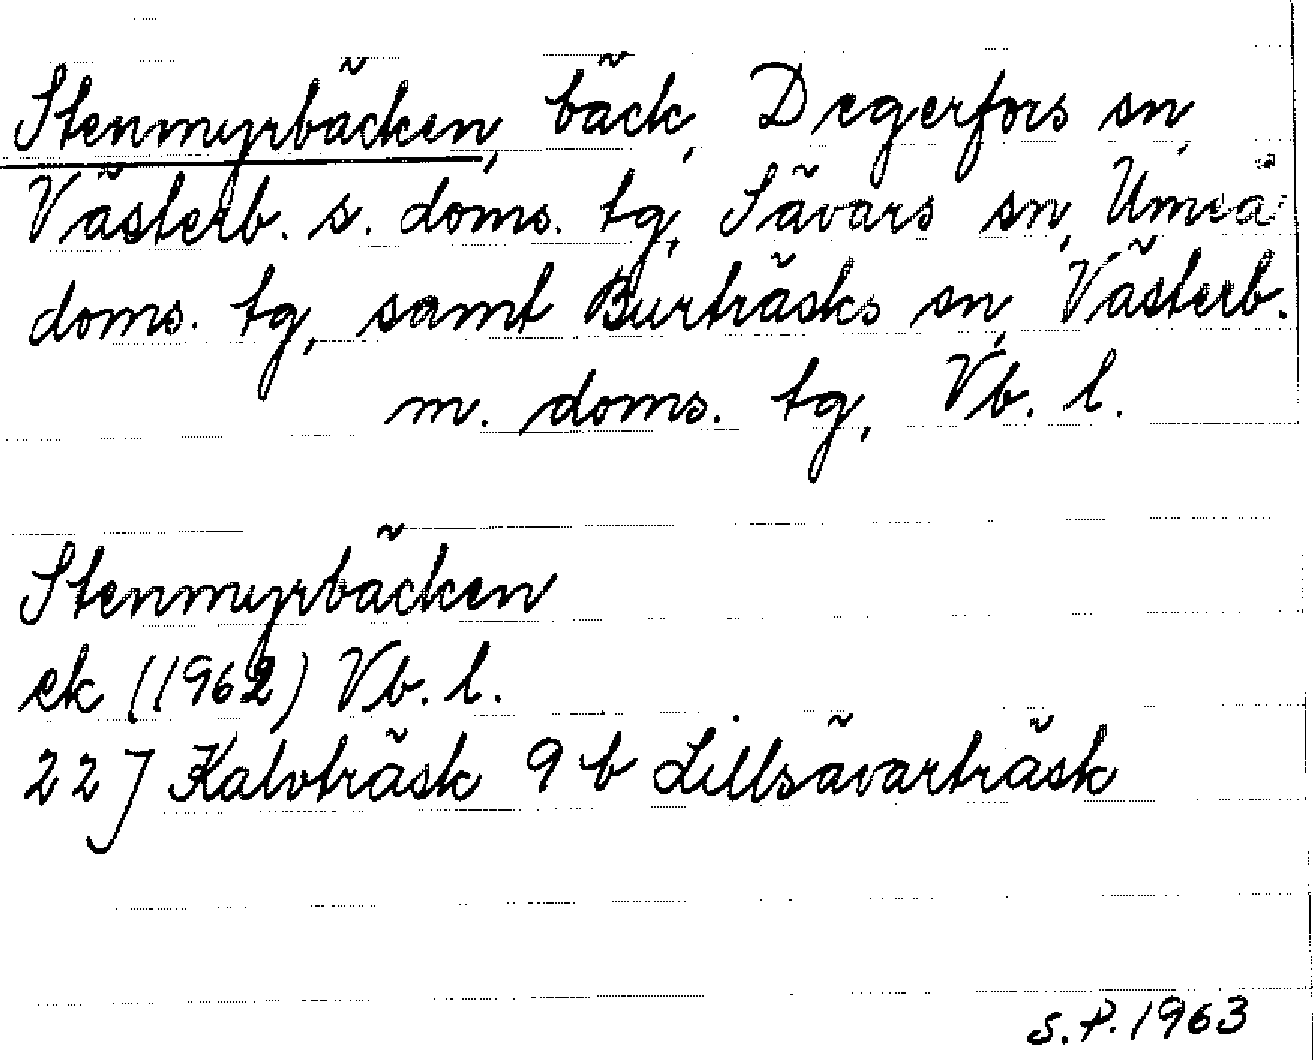 Stenmyrbäcken, bäck, Degerfors sn,
Västerb. s. doms. tg, Sävars sn, Umeå
doms. tg, samt Burträsks sn, Västerb.
m. doms. tg, Vb. l.
Stenmyrbäcken
ek (1962) Vb. l.
22 J Kalvträsk 9 b Lillsävarträsk
S.P. 1963